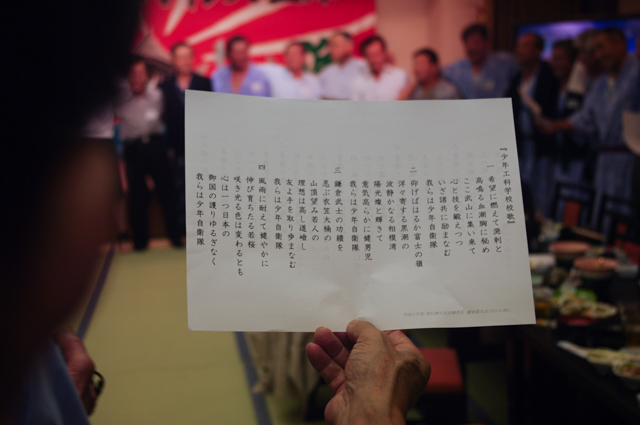 『少年工科学校校歌』
一 希望に燃えて溌剌と
高鳴る血潮胸に秘め
ここ武山に集い来て
心と技を鍛えつつ
いざ諸共に励まなむ
我らは少年自衛隊
二 仰げばはるか富士の嶺
洋々寄する黒潮の
波静かなる相模湾
陽光燦と輝きて
意気高らかに健男児
我らは少年自衛隊
三 鎌倉武士の功績を
忍ぶ衣笠大楠の
山頂望み若人の
理想は高し道嶮し
友よ手を取り歩まなむ
我らは少年自衛隊
四 風雨に耐えて健やかに
伸び育ちたる若桜
咲き光る色は変わるとも
心は一つ日本の
御国の護りゆるぎなく
我らは少年自衛隊